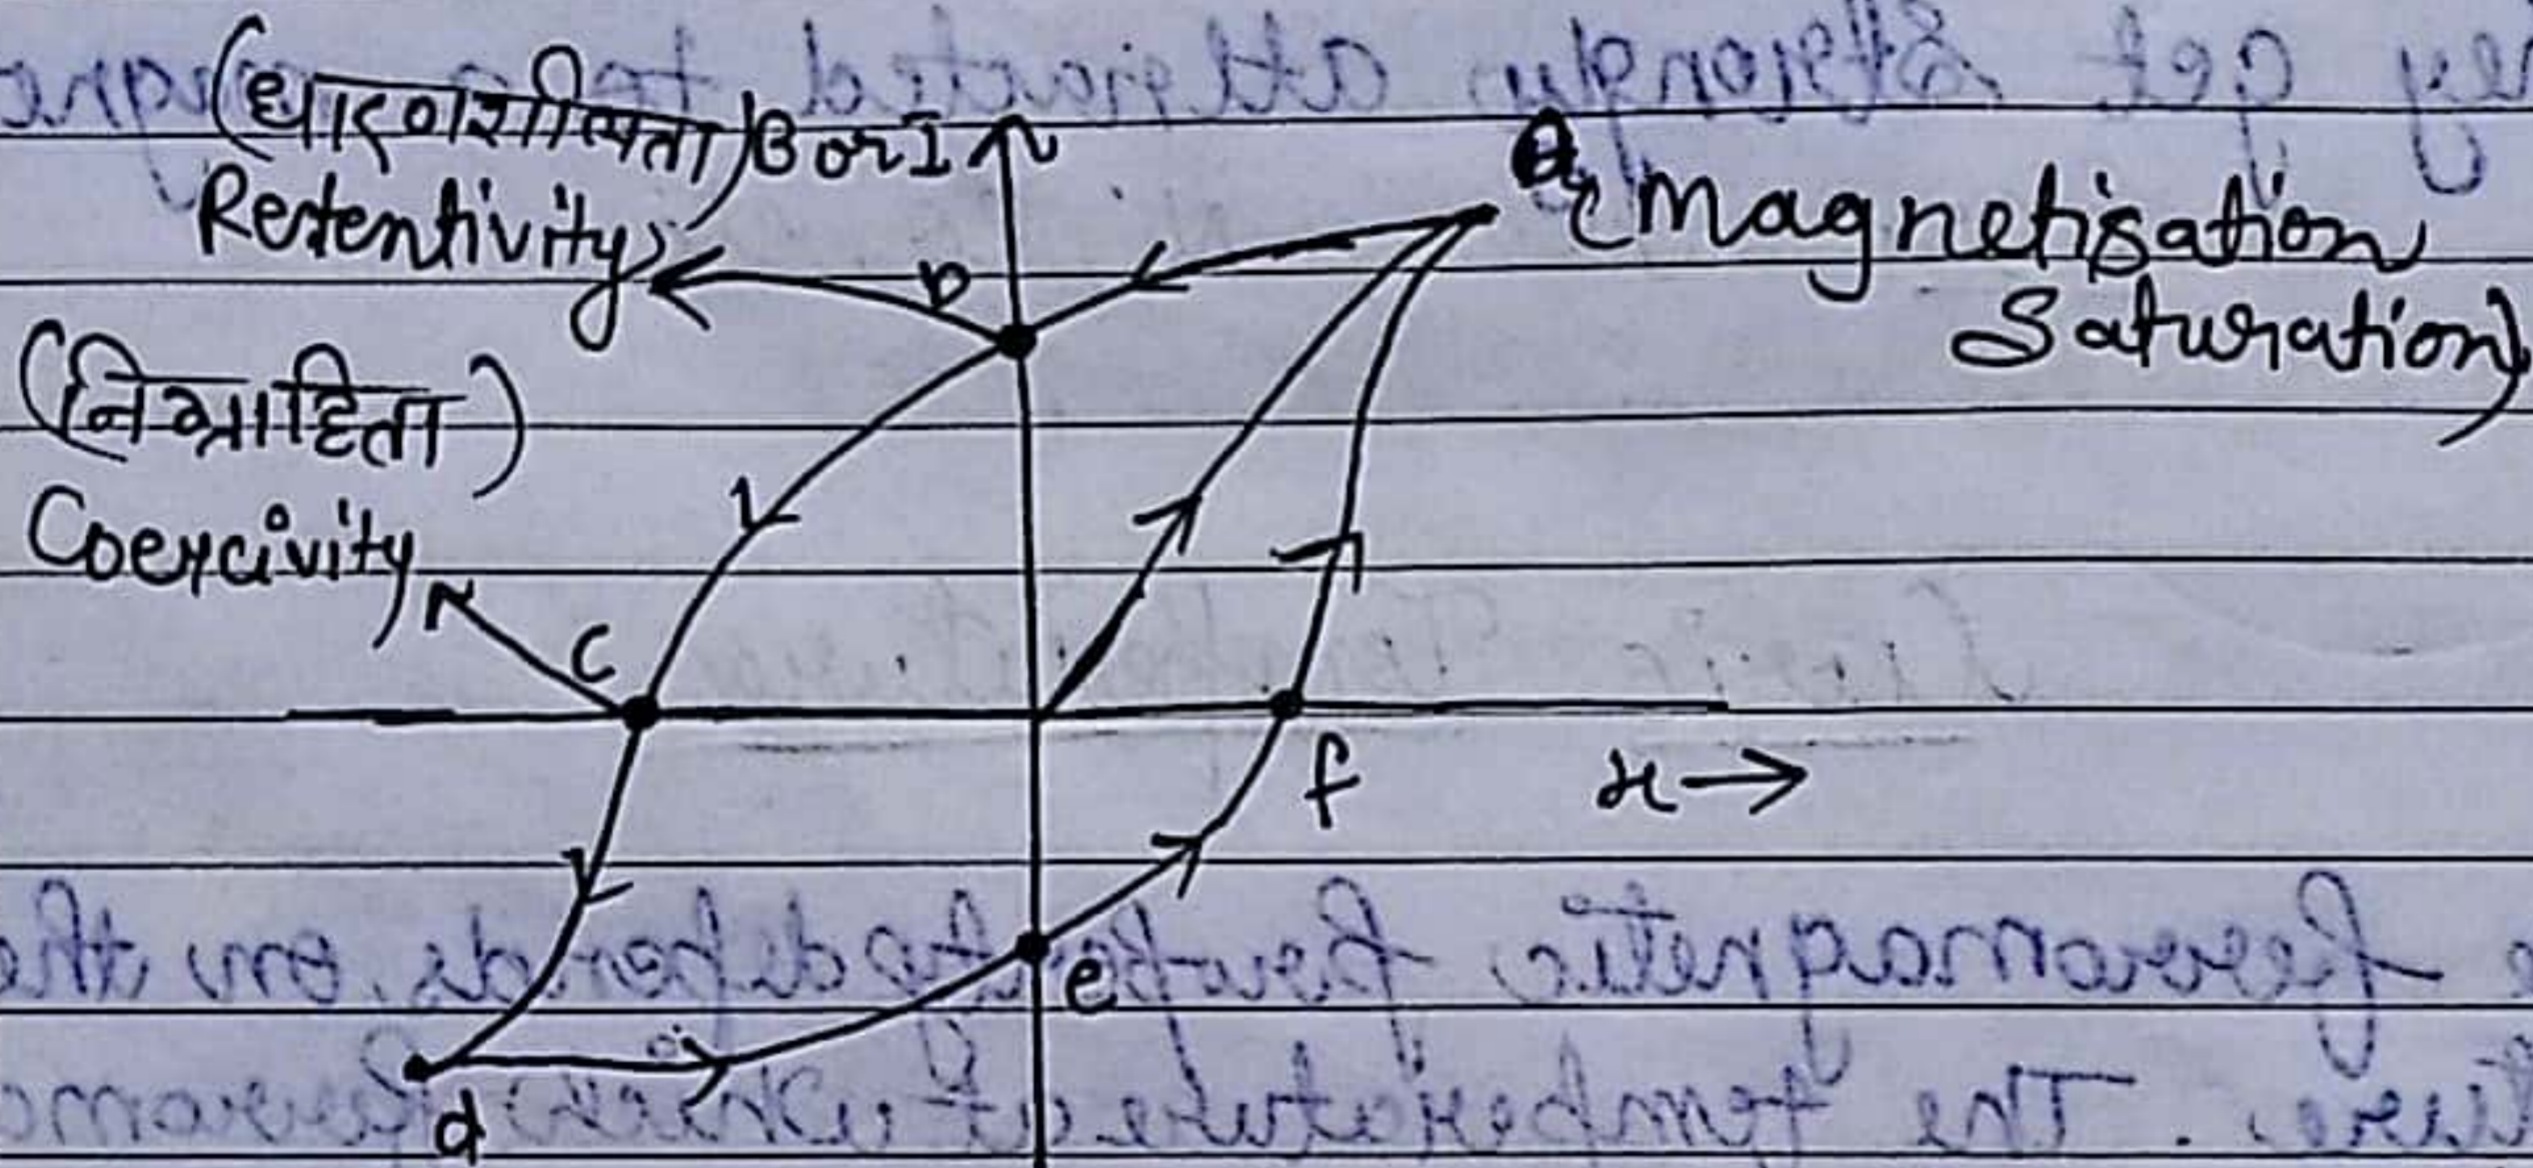 (धारणशीलता) B or I
Retentivity
a (Magnetisation
Saturation)
b
(निग्राहिता)
Coercivity
c
f
H →
e
d